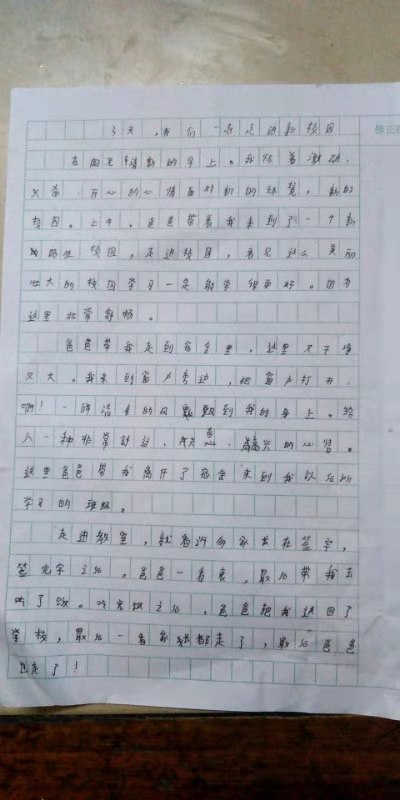 今天,我们一起走进新校园
在阳光清新的早上。我怀着激动、
兴奋、开心的心情面对新的环境,新的
校园。上午。爸爸带着我来到了一个新
的陌生校园,走进校园,看见这么美丽
壮大的校园学习一定能学得更好。因为
这里非常舒畅。
爸爸带我走到宿舍里,这里又干净
又大。我来到窗户旁边,把窗户打开,
啊!一阵清柔的风飘到我的身上。给
人一种非常舒适、高兴的心情。
这里爸爸带我离开了宿舍来到我以后所
学习的班级。
走进教室,就看许多家长在签字,
签完字之后,爸爸一看表,最后带我去
吃了饭。吃完饭之后,爸爸把我送回了
学校,最后一看家长都走了,最后爸爸
也走了!
修正